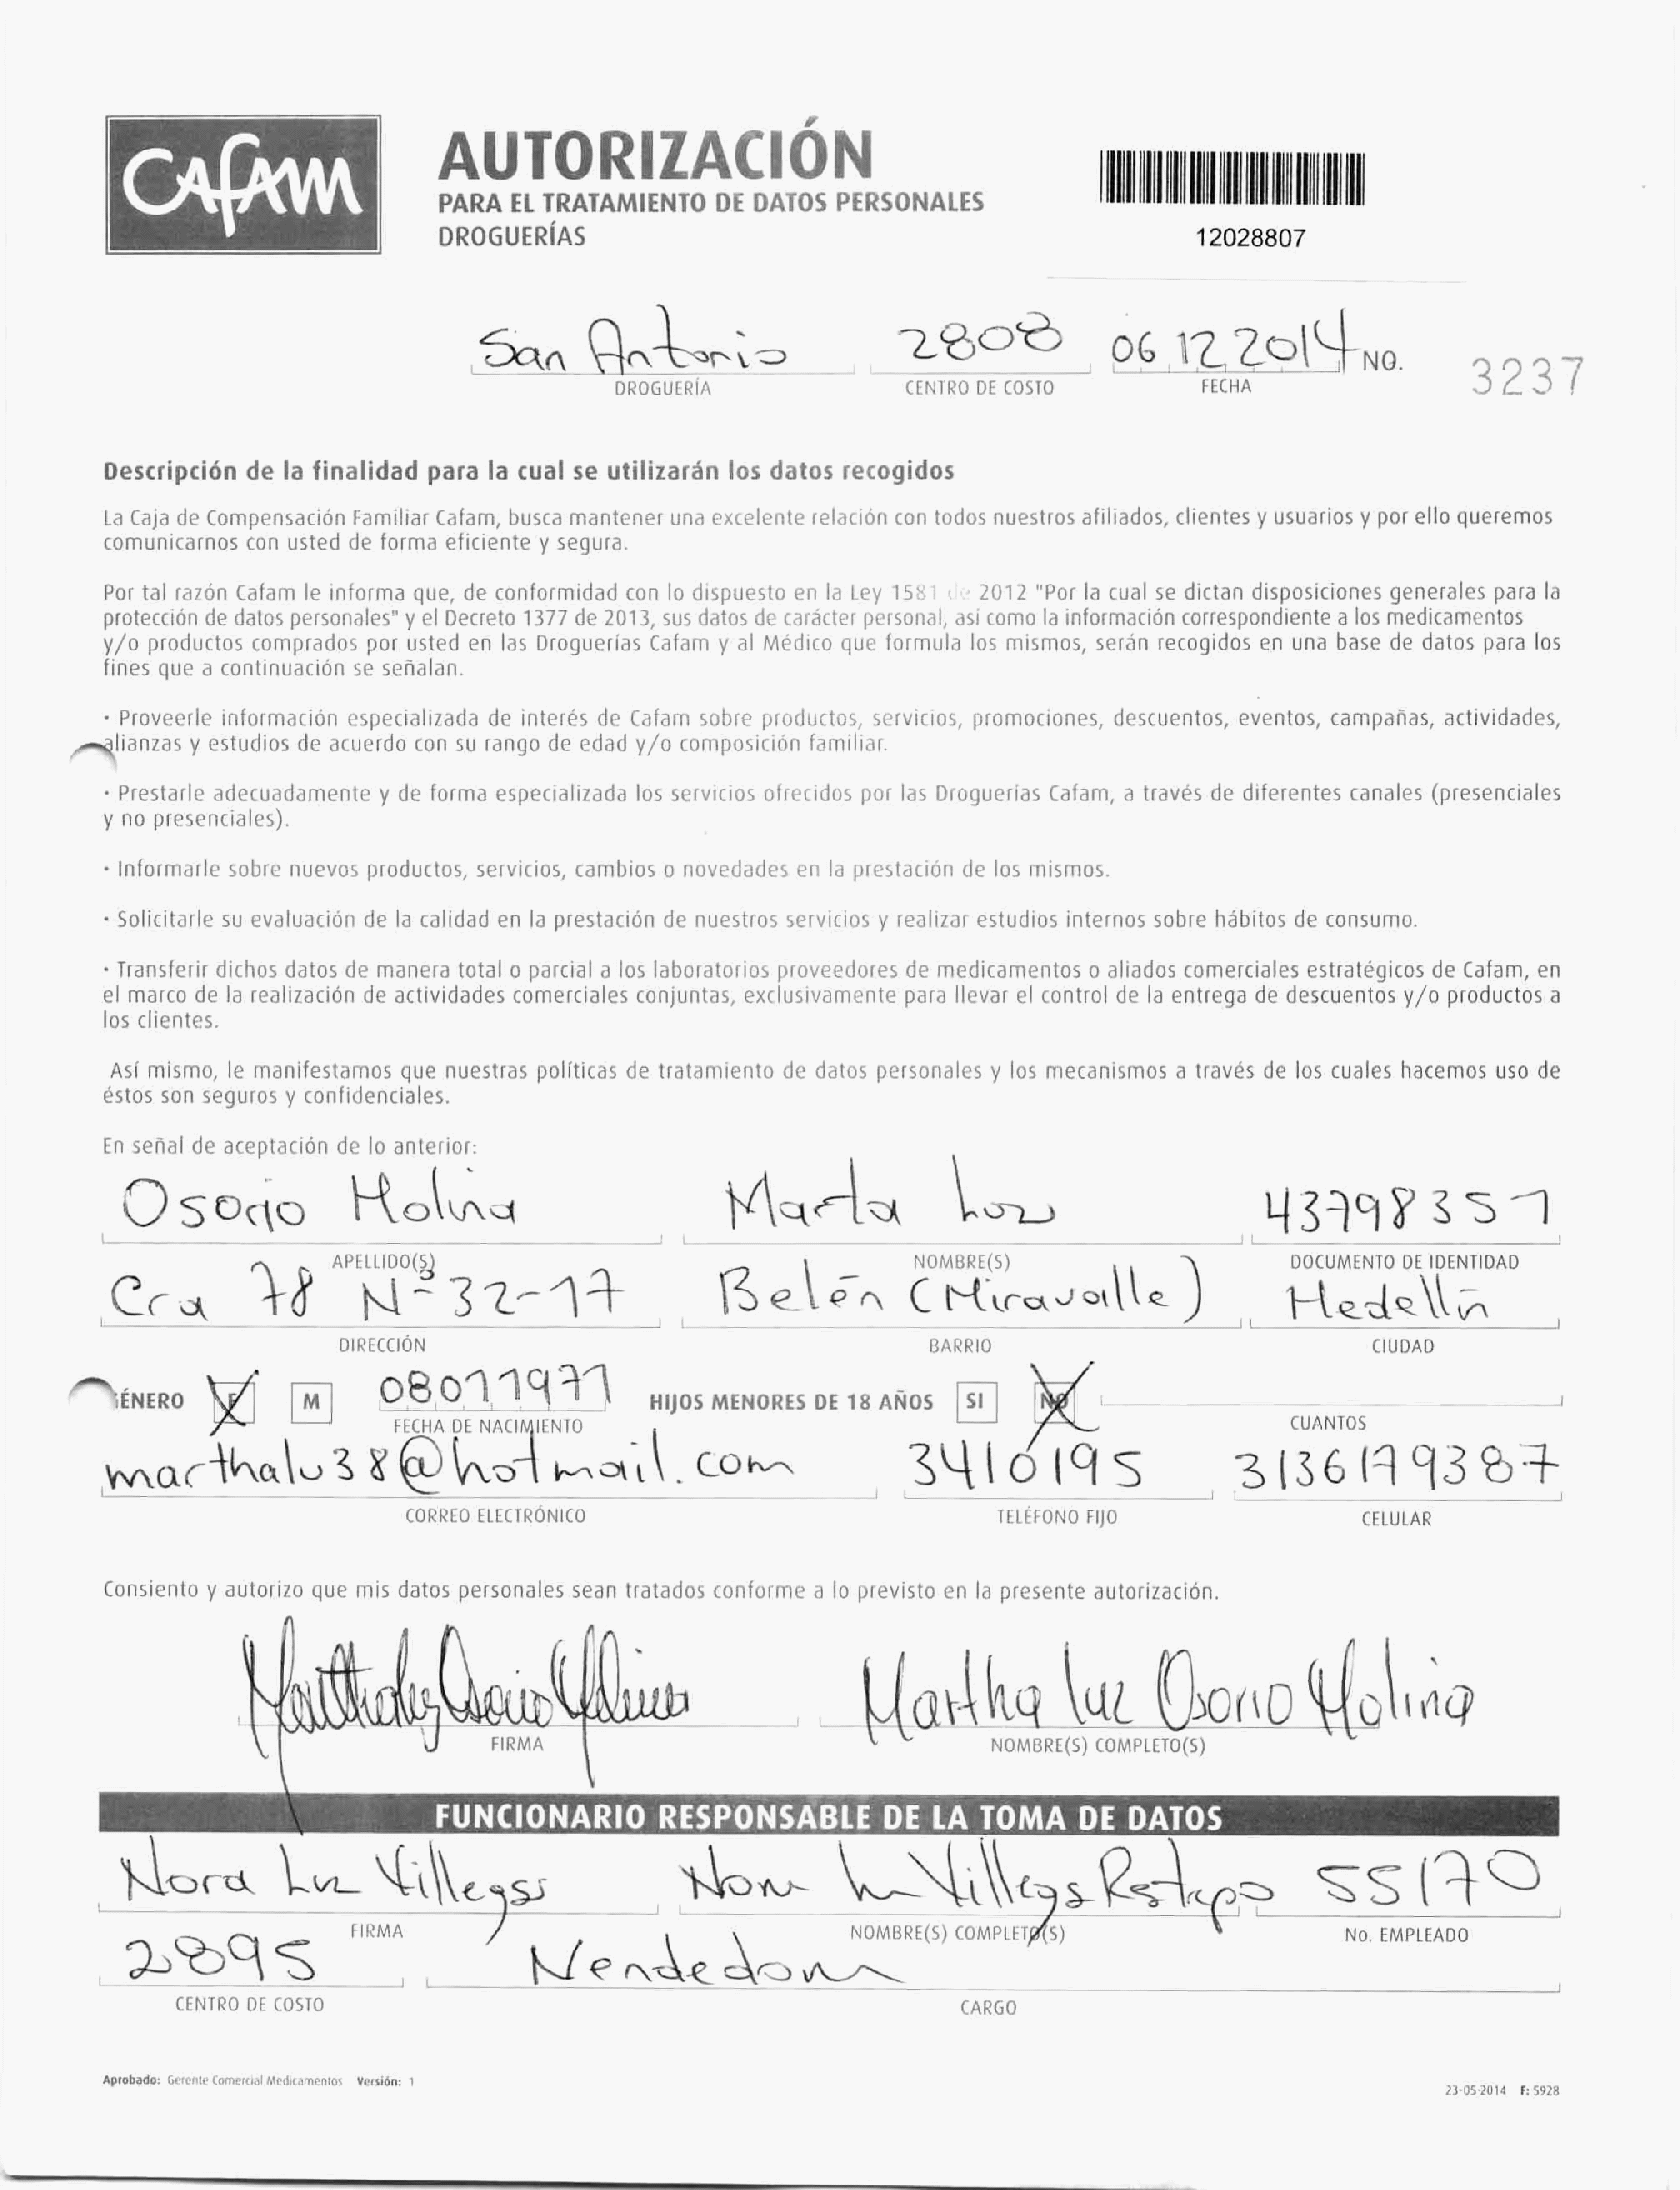 CAFAM
AUTORIZACIÓN
PARA EL TRATAMIENTO DE DATOS PERSONALES
DROGUERÍAS
12028807
San Antonio 2808 06 12 2014 NO. 3237
DROGUERÍA CENTRO DE COSTO FECHA
Descripción de la finalidad para la cual se utilizarán los datos recogidos
La Caja de Compensación Familiar Cafam, busca mantener una excelente relación con todos nuestros afiliados, clientes y usuarios y por ello queremos
comunicarnos con usted de forma eficiente y segura.
Por tal razón Cafam le informa que, de conformidad con lo dispuesto en la Ley 1581 de 2012 "Por la cual se dictan disposiciones generales para la
protección de datos personales" y el Decreto 1377 de 2013, sus datos de carácter personal, así como la información correspondiente a los medicamentos
y/o productos comprados por usted en las Droguerías Cafam y al Médico que formula los mismos, serán recogidos en una base de datos para los
fines que a continuación se señalan.
· Proveerle información especializada de interés de Cafam sobre productos, servicios, promociones, descuentos, eventos, campañas, actividades,
alianzas y estudios de acuerdo con su rango de edad y/o composición familiar.
· Prestarle adecuadamente y de forma especializada los servicios ofrecidos por las Droguerías Cafam, a través de diferentes canales (presenciales
y no presenciales).
· Informarle sobre nuevos productos, servicios, cambios o novedades en la prestación de los mismos.
· Solicitarle su evaluación de la calidad en la prestación de nuestros servicios y realizar estudios internos sobre hábitos de consumo.
· Transferir dichos datos de manera total o parcial a los laboratorios proveedores de medicamentos o aliados comerciales estratégicos de Cafam, en
el marco de la realización de actividades comerciales conjuntas, exclusivamente para llevar el control de la entrega de descuentos y/o productos a
los clientes.
Así mismo, le manifestamos que nuestras políticas de tratamiento de datos personales y los mecanismos a través de los cuales hacemos uso de
éstos son seguros y confidenciales.
En señal de aceptación de lo anterior:
Osorio Molina Marta Luz 43798357
APELLIDO(S) NOMBRE(S) DOCUMENTO DE IDENTIDAD
Cra 78 Nº 32-17 Belén (Miravalle) Medellín
DIRECCIÓN BARRIO CIUDAD
GÉNERO F M 08011971 HIJOS MENORES DE 18 AÑOS SI NO
FECHA DE NACIMIENTO CUANTOS
marthalu38@hotmail.com 3410195 3136179387
CORREO ELECTRÓNICO TELÉFONO FIJO CELULAR
Consiento y autorizo que mis datos personales sean tratados conforme a lo previsto en la presente autorización.
Martha Luz Osorio Molina Martha Luz Osorio Molina
FIRMA NOMBRE(S) COMPLETO(S)
FUNCIONARIO RESPONSABLE DE LA TOMA DE DATOS
Nora Luz Villegas Nora Lu Villegas Restrepo 55170
FIRMA NOMBRE(S) COMPLETO(S) No. EMPLEADO
2895 Vendedora
CENTRO DE COSTO CARGO
Aprobado: Gerente Comercial Medicamentos Versión: 1
23-05-2014 F: 5928